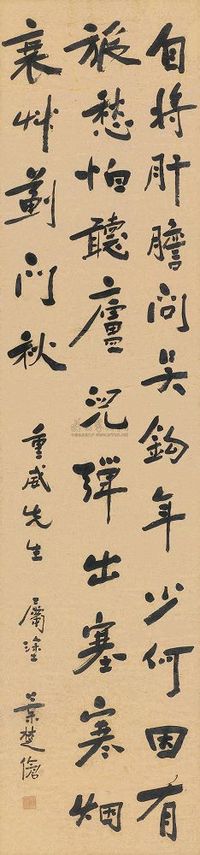 自将肝膽向吴鈎年少何因有
旅愁怕聽廬兒彈出塞寒烟
衰艸薊門秋
重威先生 屬塗 葉楚傖